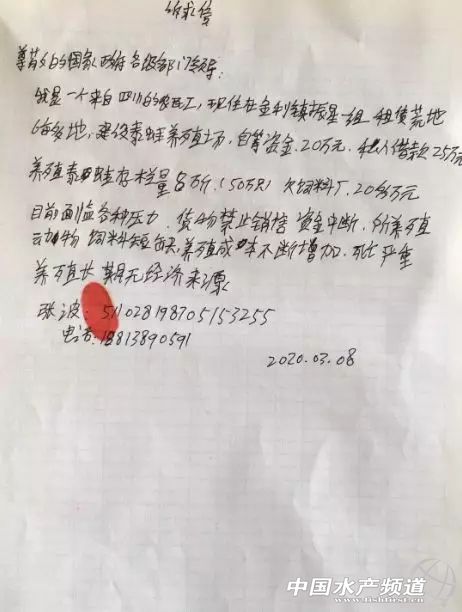 诉求信
尊敬的国家政府各级部门领导:
我是一个来自四川的农民工,现住在金利镇振星一组租赁荒地
6亩多地,建设泰蛙养殖场,自筹资金20万元,私人借款25万元
养殖泰蛙存栏量5万斤(50万只)欠饲料厂20多万元
目前面临各种压力,货物禁止销售资金中断,所养殖
动物饲料短缺,养殖成本不断增加,死亡严重
养殖长期无经济来源
张波:511028198705153255
电话:18813890591
2020.03.08
中国水产频道
www.fishfirst.cn